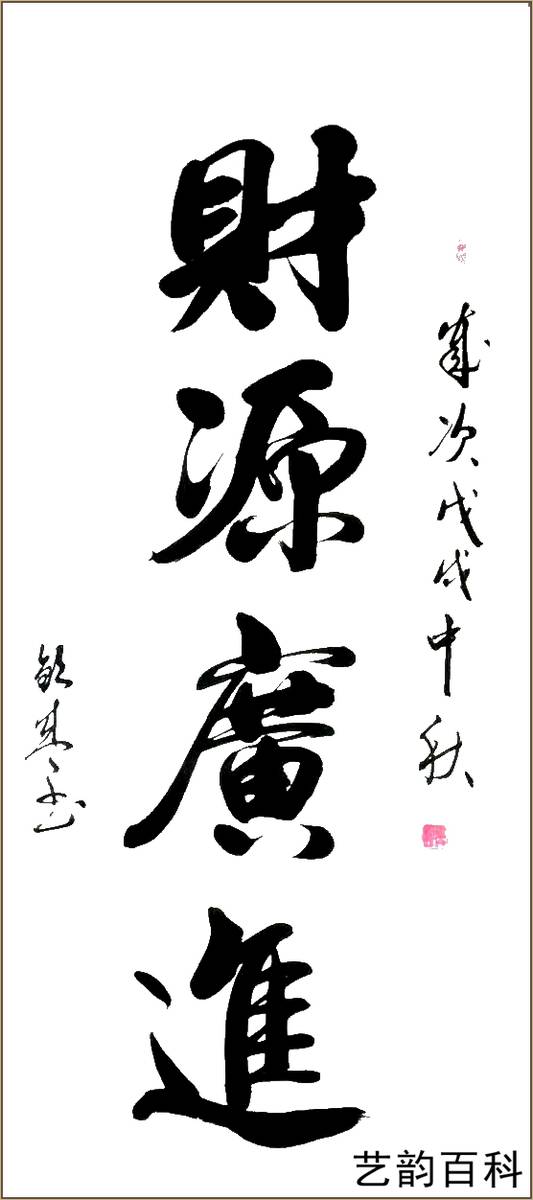 歲次戊戌中秋
財源廣進
艺韵百科